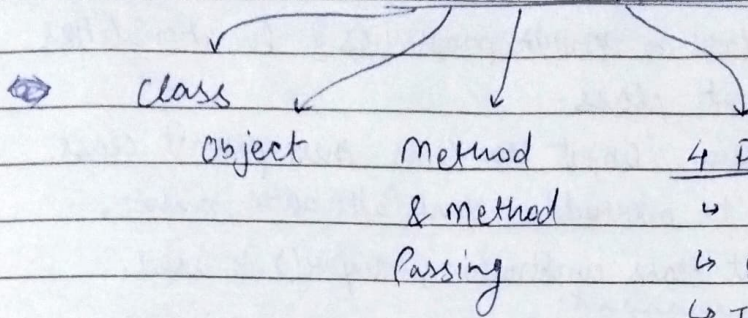 Class
Object Method 4 P
& Method
Passing